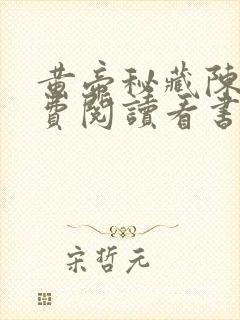 黄帝秘藏陳
費閱讀看書
宋哲元